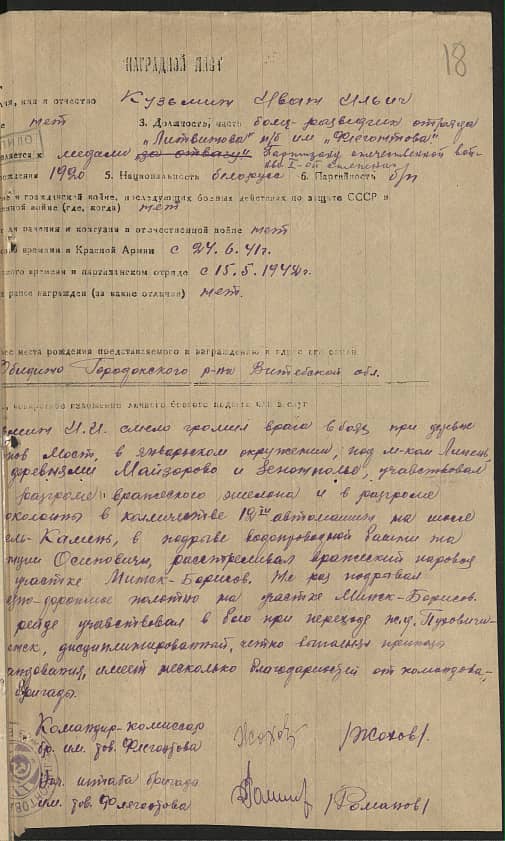 18
НАГРАДНОЙ ЛИСТ
имя и отчество Кузьмин Иван Ильич
нет 3. Должность, часть боец-разведчик отряда
"Литвинова" п/б им. "Флегонтова"
к медали "за отвагу" Партизану отечественной вой-
ны I-ой степени
рождения 1920 5. Национальность белорус 6. Партийность б/п
в гражданской войне, последующих боевых действиях по защите СССР и
войне (где, когда) нет
ранения и контузии в отечественной войне нет
времени в Красной Армии с 24.6.41г.
времени в партизанском отряде с 15.5.1942г.
ранее награжден (за какие отличия) нет.
места рождения представляемого к награждению и адрес его семьи
Городокского р-на Витебской обл.
конкретное изложение личного боевого подвига или заслуг
И.И. смело громил врага в боях при деревне
Мост, в январском окружении, под м-ком
деревнями Майзорово и участвовал
разгроме вражеского эшелона и в разгроме
колонны в количестве 12ти автомашин на шоссе
Камень, в подрыве водопроводной башни на
Осиповичи, расстреливал вражеский паровоз
участке Минск-Борисов. Не раз подрывал
полотно на участке Минск-Борисов.
рейде участвовал в бою при переходе ж.д. Пуховичи-
дисциплинированный, четко выполнял приказы
имеет несколько благодарностей от командова-
бригады.
Командир-комиссар
бр. им. тов. Флегонтова /Жохов/.
Нач. штаба бригады
им. тов. Флегонтова /Романов/